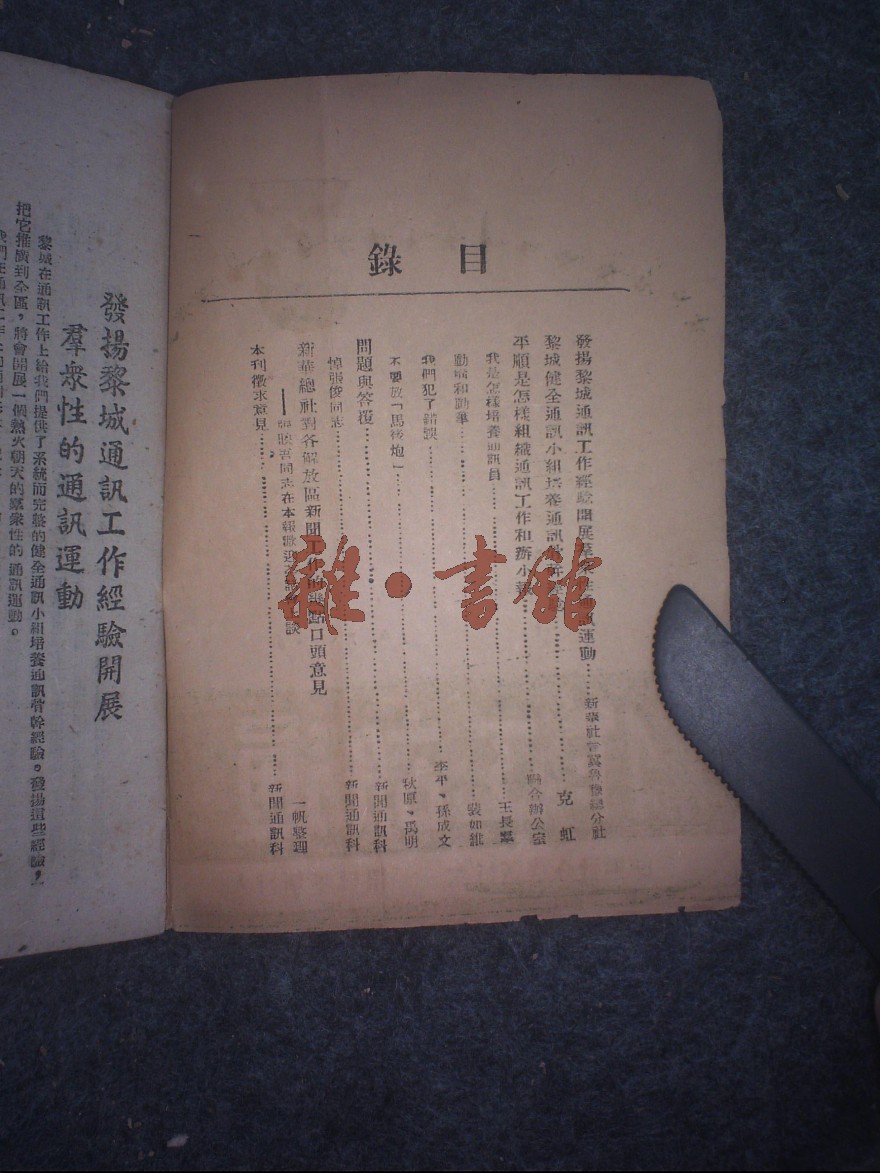 目錄
發揚黎城通訊工作經驗開展羣衆性通訊運動……新華社晉冀魯豫總分社
黎城健全通訊小組培養通訊骨幹……克虹
平順是怎樣組織通訊工作和辦小報……聯合辦公室
我是怎樣培養通訊員……王長
……裴如維
我們犯了錯誤……李平、孫成文
不要放「馬後炮」……秋原、禹明
問題與答覆……新聞通訊科
悼張俊同志……新聞通訊科
新華總社對各解放區新聞工作的幾點口頭意見
——同志在本報歡迎談……一帆整理
本刊徵求意見……新聞通訊科
雜·書館
發揚黎城通訊工作經驗開展
羣衆性的通訊運動
黎城在通訊工作上給我們提供了系統而完整的健全通訊小組培養通訊骨幹經驗。發揚這些經驗，
把它推廣到全區，將會開展一個熱火朝天的羣衆性的通訊運動。